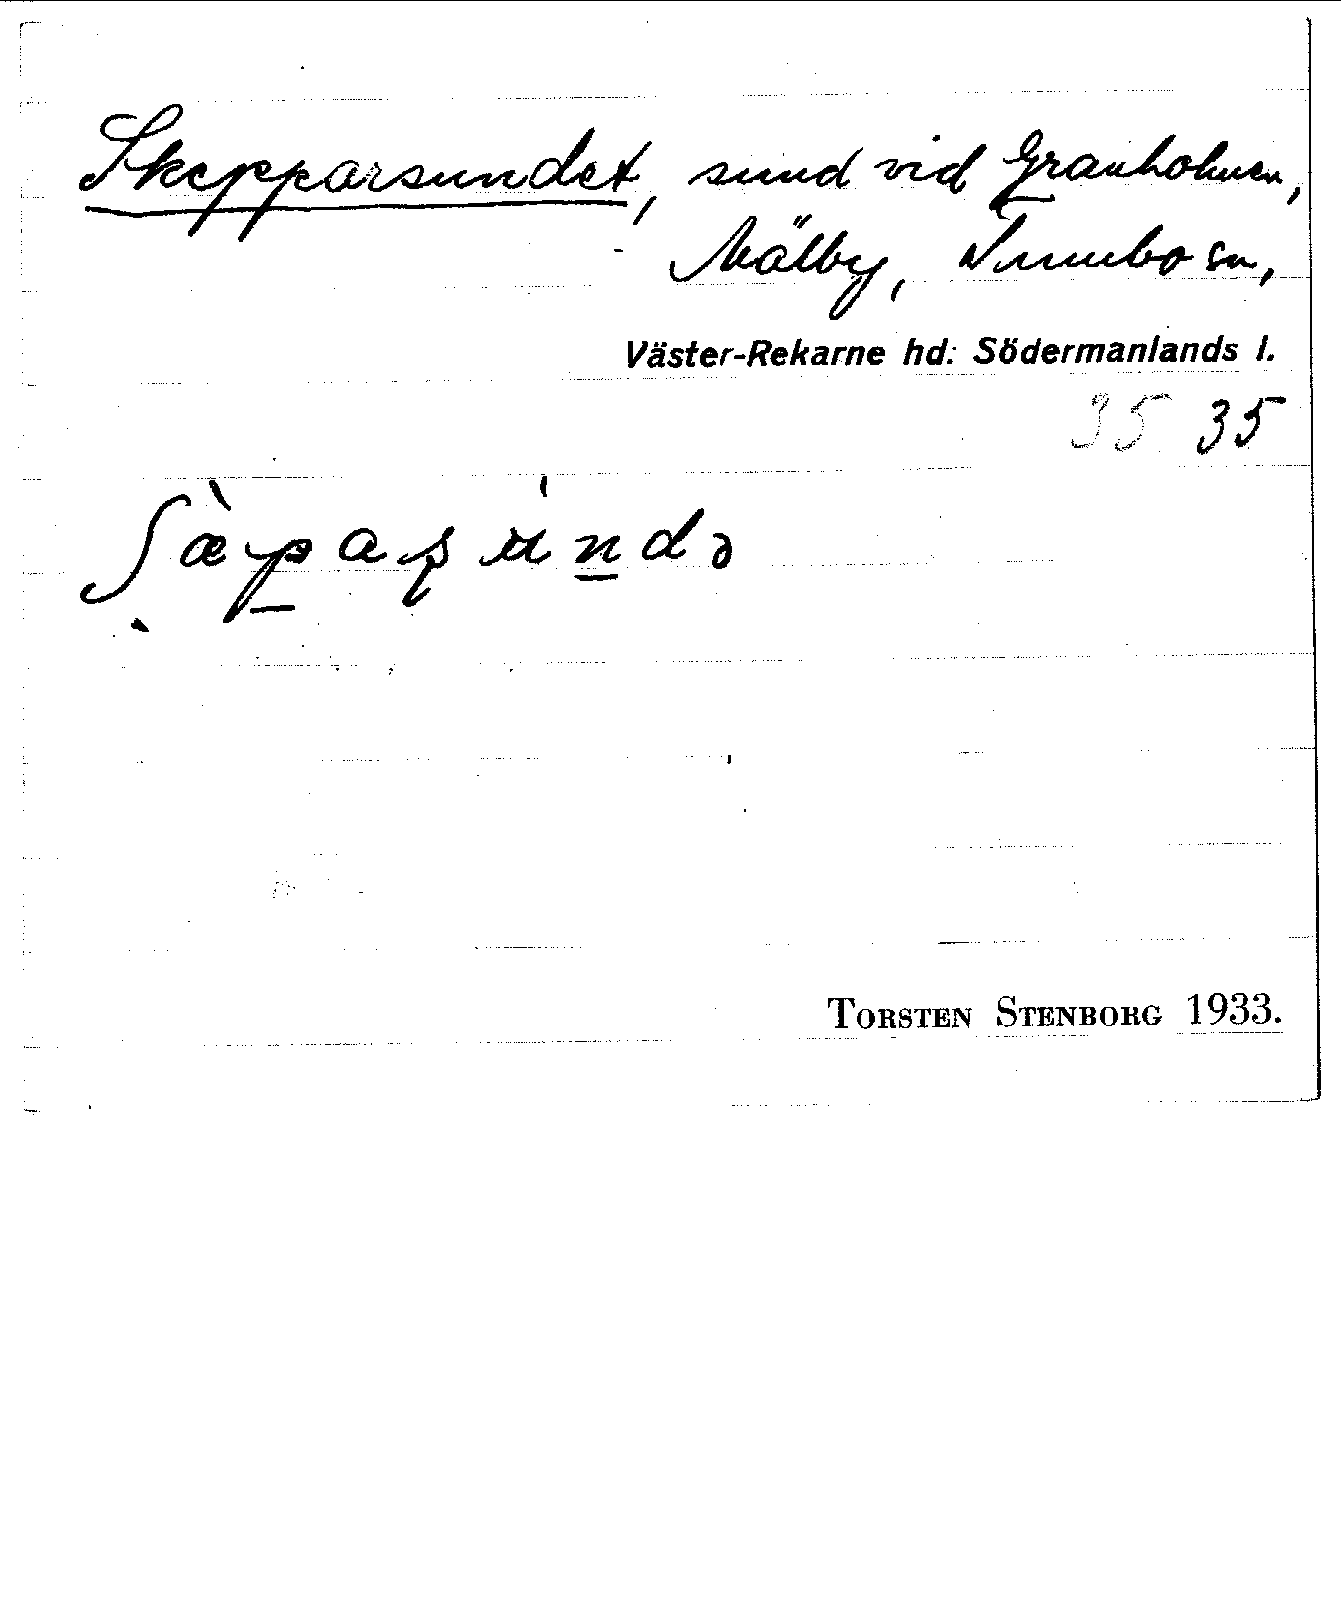 Skepparsundet, sund vid Granholmen,
Mälby, Tumbo sn,
Väster-Rekarne hd: Södermanlands l.
35 35
TORSTEN STENBORG 1933.